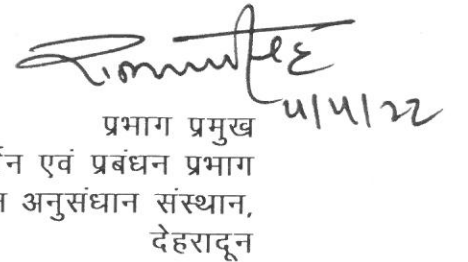 4/4/22
प्रभाग प्रमुख
एवं प्रबंधन प्रभाग
अनुसंधान संस्थान,
देहरादून